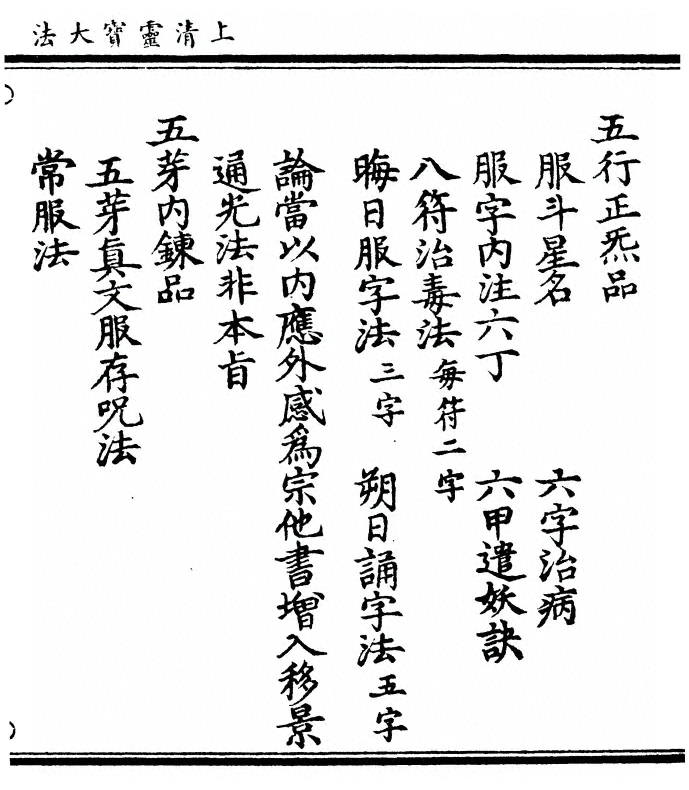 上清靈寶大法
五行正炁品
服斗星名 六字治病
服字内注六丁 六甲遣妖訣
八符治毒法 每符二字
晦日服字法 三字 朔日誦字法 五字
論當以内應外感爲宗他書增入移景
通光法非本旨
五芽内鍊品
五芽眞文服存呪法
常服法